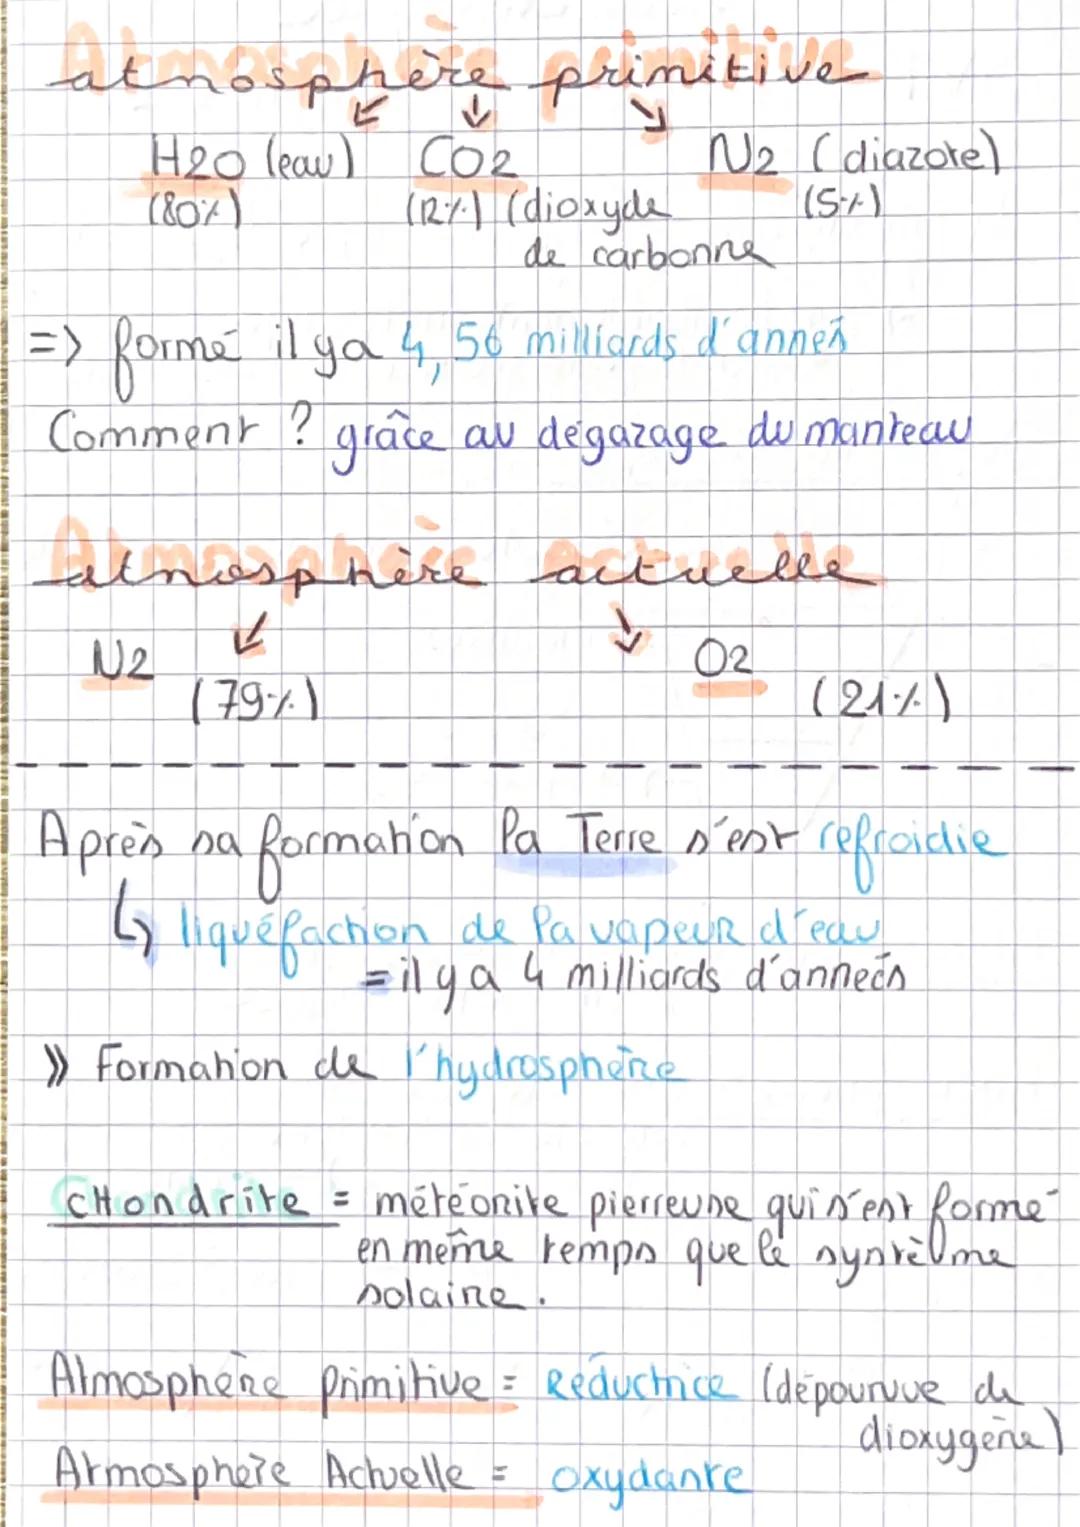 Atmosphère primitive
H2O (eau) CO2 N2 (diazote)
(80%) (12%) (dioxyde (5%)
de carbonne
=> formé il y a 4,56 milliards d'années
Comment ? grâce au dégazage du manteau
Atmosphère actuelle
N2 O2
(79%) (21%)
Après sa formation la Terre s'est refroidie
↳ liquéfaction de la vapeur d'eau
= il y a 4 milliards d'années
» Formation de l'hydrosphère
CHondrite = météorite pierreuse qui s'est formé
en même temps que le système
solaire.
Atmosphère primitive = Réductrice (dépourvue de
dioxygène)
Atmosphère Actuelle = oxydante